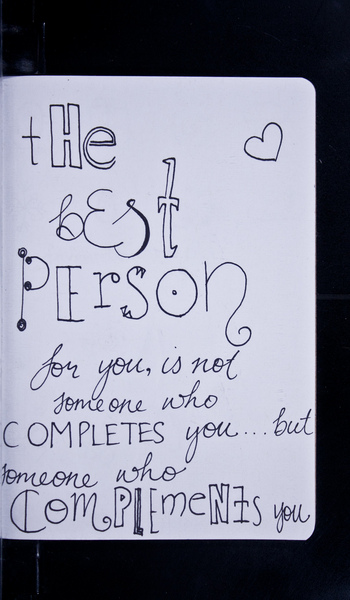 tHe
bEst
PERsOn
for you, is not
someone who
COMPLETES you...but
someone who
COmPlEmeNTs you